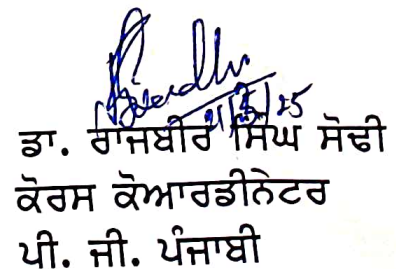 ਡਾ. ਰਾਜਬੀਰ ਸਿੰਘ ਸੋਢੀ
ਕੋਰਸ ਕੋਆਰਡੀਨੇਟਰ
ਪੀ. ਜੀ. ਪੰਜਾਬੀ